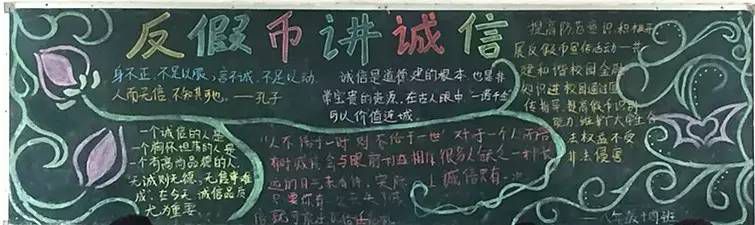 反假币讲诚信
身不正,不足以服,言不诚,不足以动
人而无信 不知其可也。——孔子
诚信是道德建的根本 也是非
常宝贵的资源,在古人眼中,一诺千金
可以价值连城。
提高防范意识,积极开
展反假币宣传活动
建和谐校园金融
知识进校园通过
传指导 提高假币识别
能力 维护广大师生合
法权益不受
非法侵害
一个诚信的人是
一个胸怀坦荡的人是
一个有高尚品德的人,
无诚则无德,无信事难
成,在今天,诚信品质
尤为重要。
以不信于一时 则不信于一世 对于一个人不信
有时诚信会与眼前利益相 很多人缺乏一种长
远的目 来看待,实际 上诚信只有一次
只要你有
八年级十四班